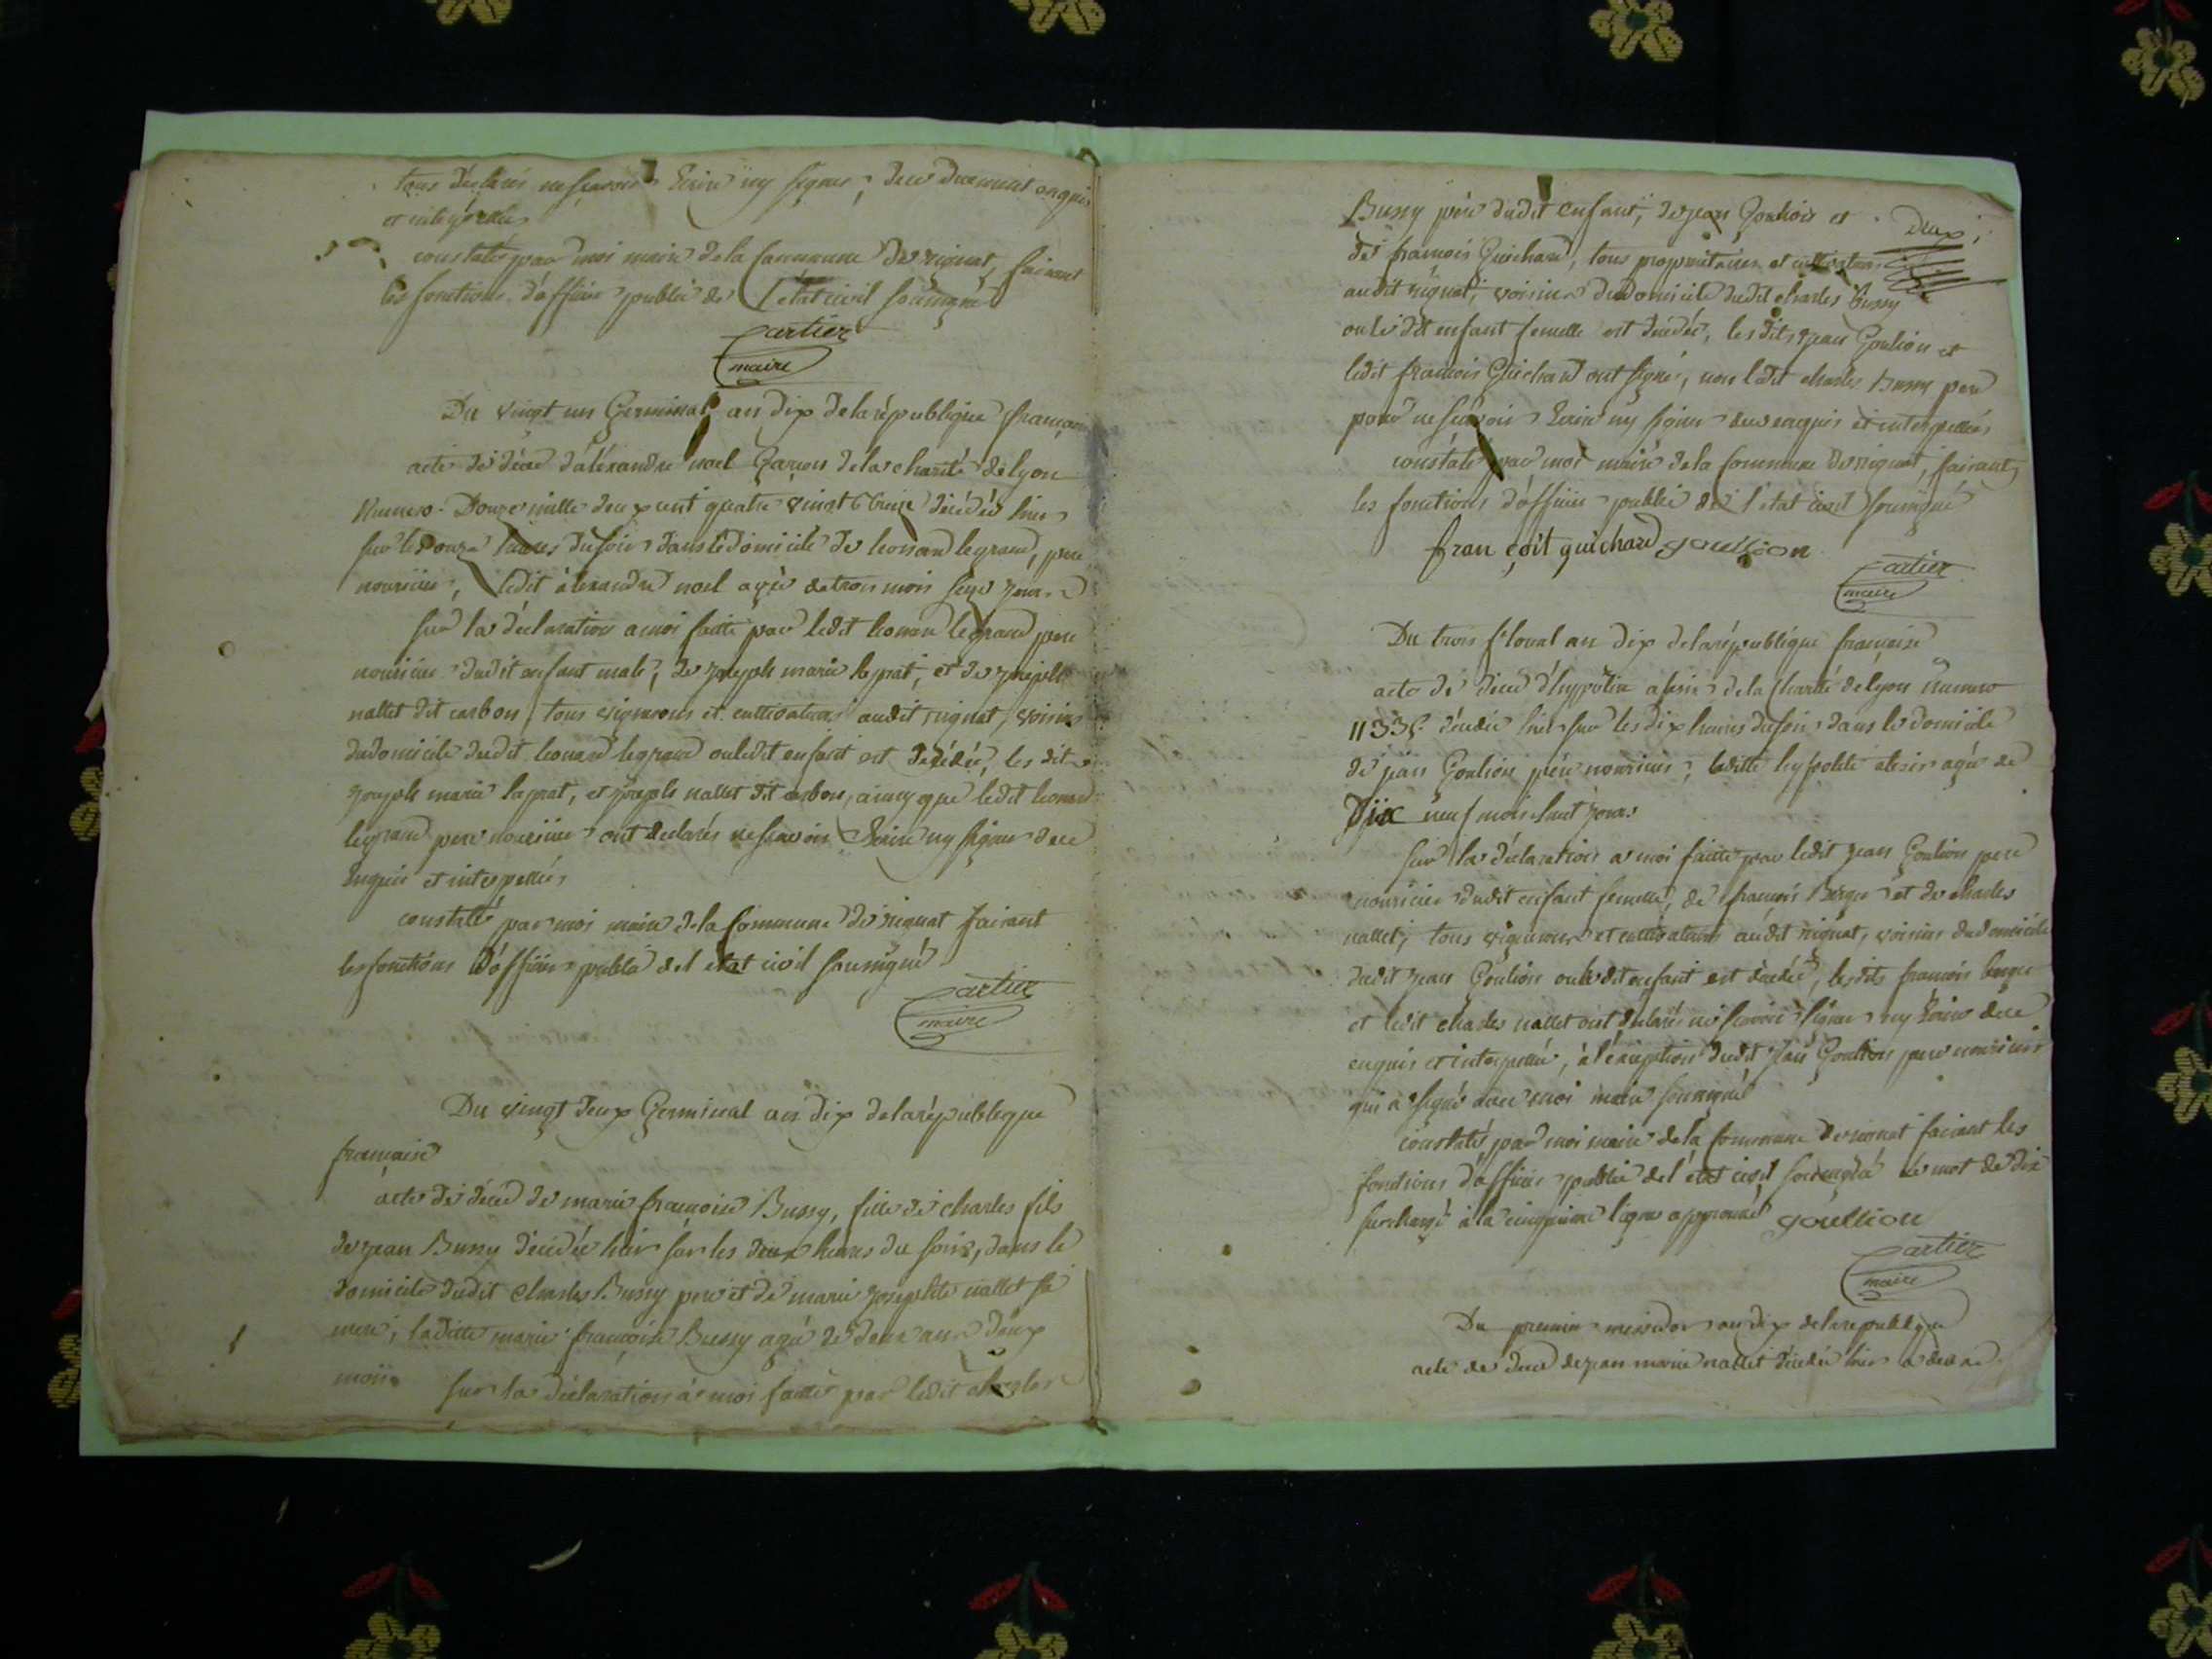 tous déclarés ne scavoir Ecrire ny signer, de ce duement enquis
et interpellés
constaté par moi maire de la Commune de rignat, faisant
les fonctions d'officier public de l'état civil soussigné
cartier
maire
Du vingt un Germinal an dix de la république française
acte de décé d'aléxandre noel Garcon de la charité de lyon
Numero Douze mille deux cent quatre vingt treize décédé hier
sur les onze heures du soir dans le domicile de leonard legrand, pere
nouricier, ledit aléxandre noel agée de trois mois seize jours
sur la déclaration a moi faitte par ledit leonard legrand pere
nouricier dudit enfant male, de joseph marie laprat, et de joseph
nallet dit carbon, tous vignerons et cultivateurs audit rignat, voisins
du domicile dudit leonard legrand ou ledit enfant est décédé, les dits
joseph marie laprat, et joseph nallet dit carbon, aincy que ledit leonard
legrand pere nouricier ont declarés ne scavoir Ecrire ny signer de ce
enquis et interpellés
constaté par moi maire de la Commune de rignat faisant
les fonctions d'officier public de l état civil soussigné
cartier
maire
Du vingt deux Germinal an dix de la république
française
acte de décé de marie françoise Bussy, fille de charles fils
de jean Bussy décédée hier sur les deux heures du soir, dans le
domicile dudit Charles Bussy pere et de marie josephte nallet sa
mere, laditte marie françoise Bussy agée de deux ans deux
mois
sur la déclaration à moi faitte par ledit charles
Bussy père dudit enfant, de jean Goulion et
Deux
de françois Guichard, tous propriétaires et cultivateurs
audit rignat, voisins du domicile dudit charles bussy
ou le dit enfant femelle est décédée, les dits jean Goulion et
ledit françois Guichard ont signés, non ledit charles Bussy pere
pour ne scavoir Ecrire ny signer de ce enquis et interpellés
constaté par moi maire de la Commune de rignat, faisant
les fonctions d'officier public de l'état civil soussigné
fran çoit guichard goullion
cartier
maire
Du trois floreal an dix de la république française
acte de décé d'hypolite de la Charité de lyon numero
décédée hier sur les dix heures du soir dans le domicile
de jean Goulion père nouricier, laditte hypolite agée de
Dix neuf mois huit jours
sur la déclaration a moi faitte par ledit jean Goulion pere
nouricier dudit enfant femelle, de françois Berger et de charles
nallet, tous vignerons et cultivateurs audit rignat, voisins du domicile
dudit jean Goulion ou le dit enfant est décédée, lesdits françois berger
et ledit charles nallet ont declarés ne scavoir signer ny Ecrire de ce
enquis et interpellé, à l'éxception dudit jean Goulion pere nouricier
qui à signé avec moi maire soussigné
constaté par moi maire de la commune de rignat faisant les
fonctions d'officier public de l état civil soussigné le mot de dix
surchargé à la cinquieme ligne approuvé goullion
cartier
maire
Du premier messidor an dix de la republique
acte de décé de jean marie nallet décédé hier a